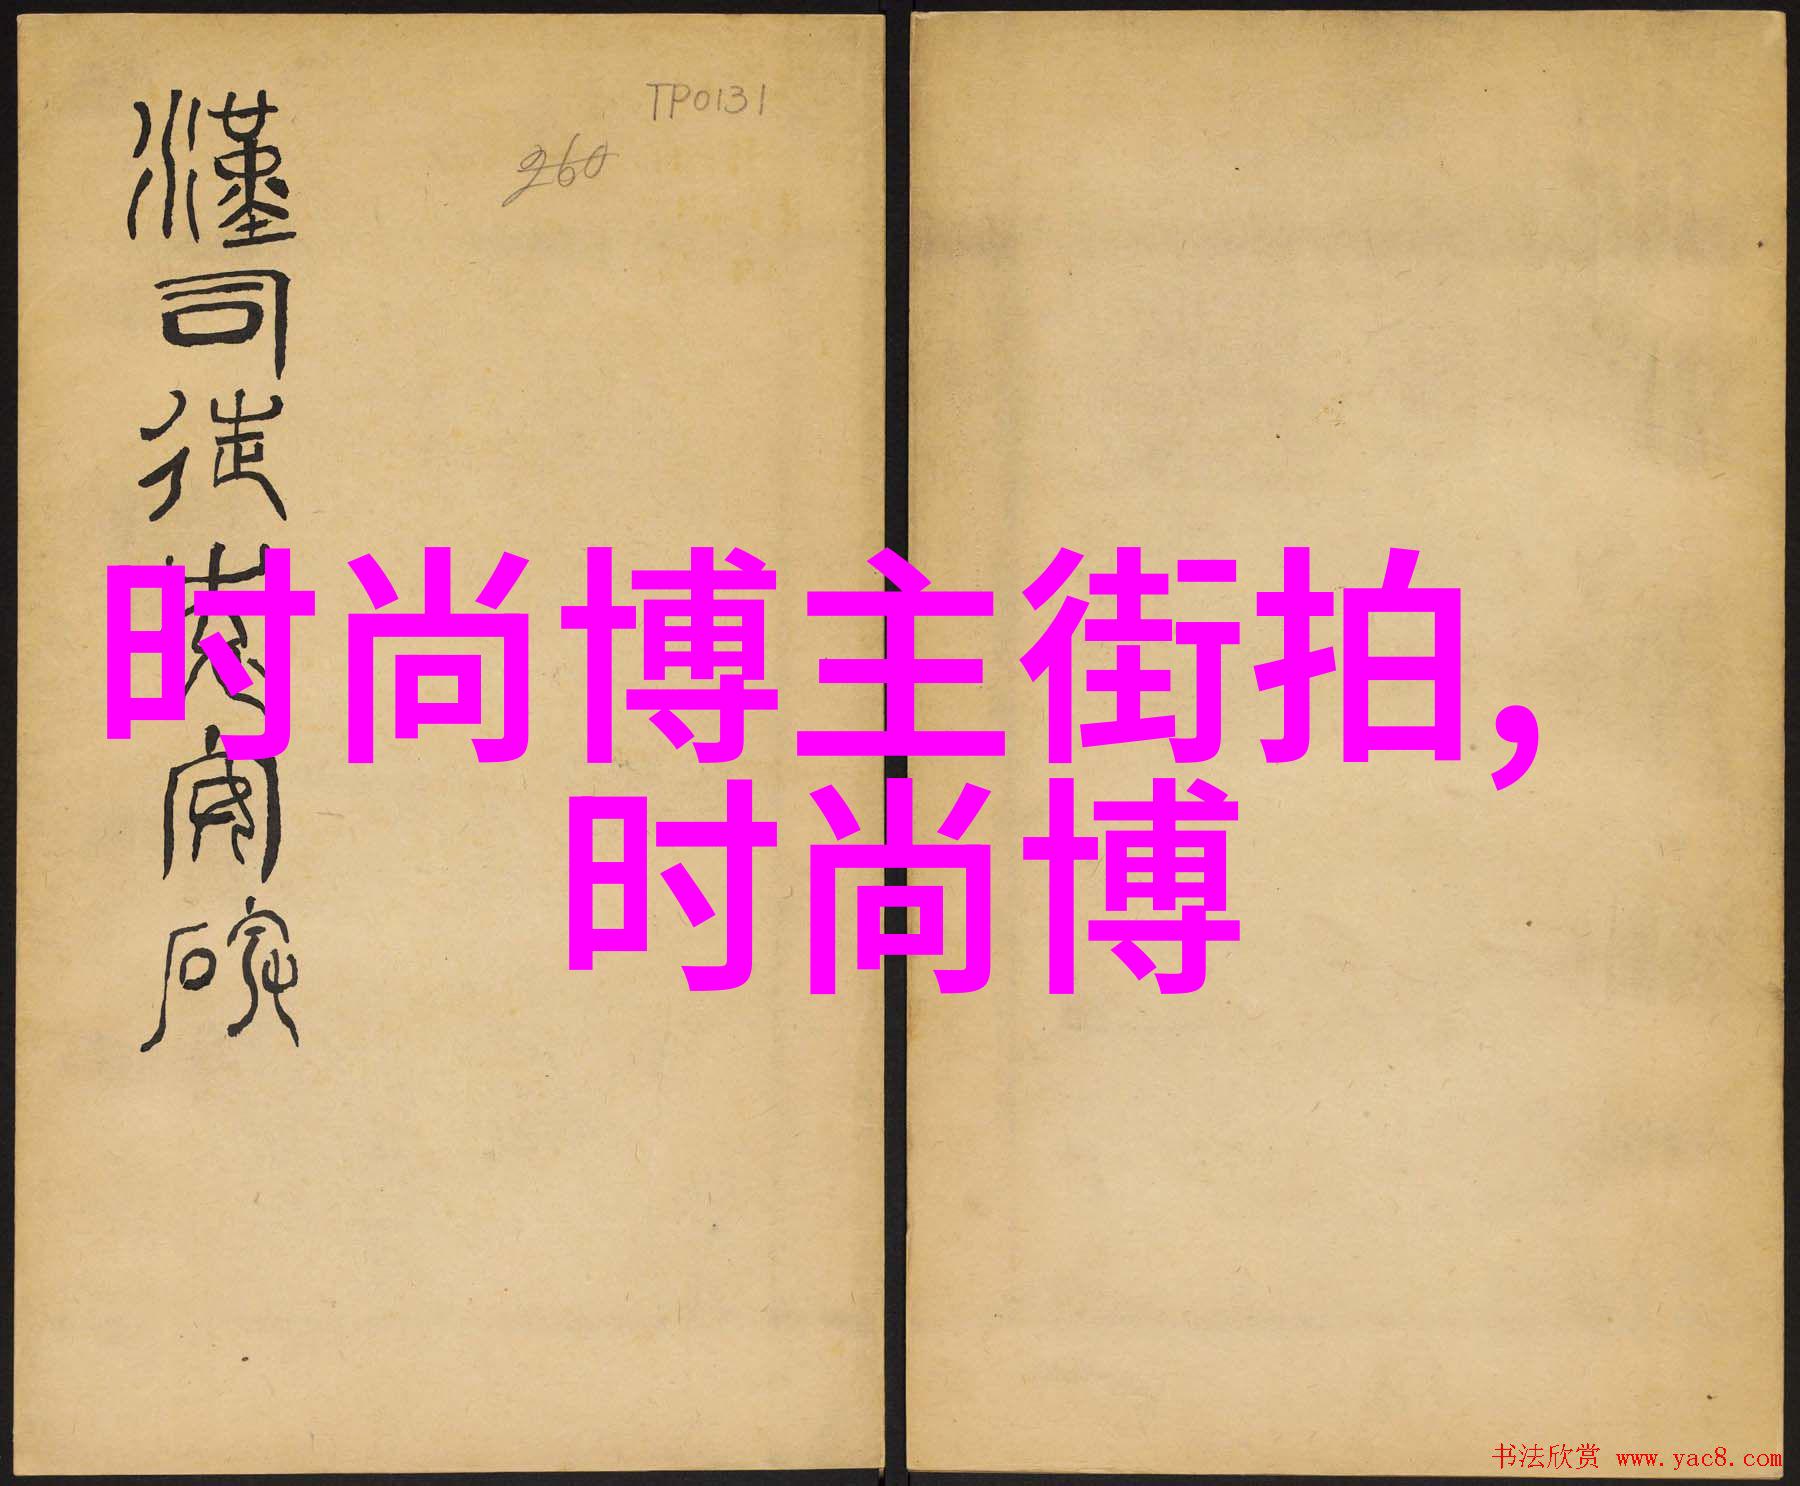 漢司徒袁安碗
TP0131
260
时尚博主街拍,
时尚博
书法欣赏 www.yac8.com